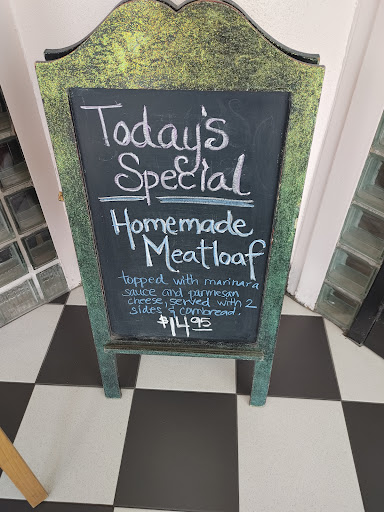 Today's
Special
Homemade
Meatloaf
topped with marinara
sauce and parmesan
cheese, served with 2
sides & cornbread.
$14.95